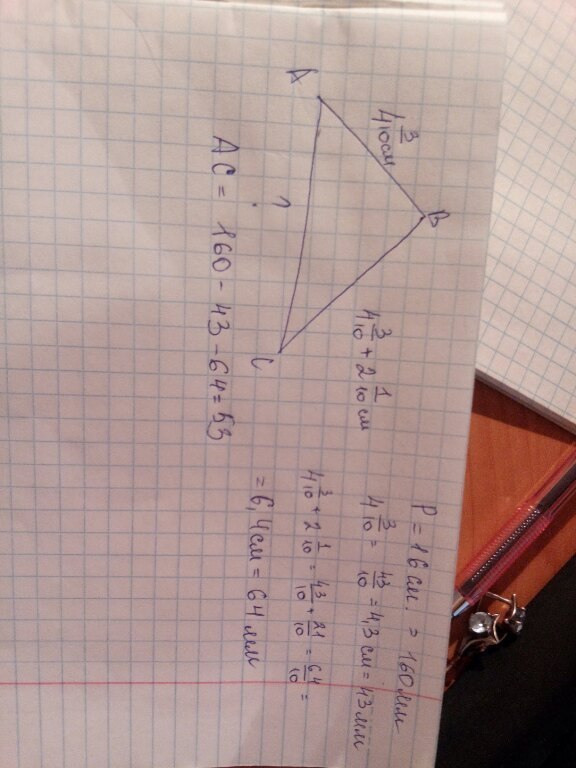 B
4 3/10 см
A
?
C
4 3/10 + 2 1/10 см
P = 16 см. = 160 мм
4 3/10 = 43/10 = 4,3 см = 43 мм
4 3/10 + 2 1/10 = 43/10 + 21/10 = 64/10 =
= 6,4 см = 64 мм
AC = 160 - 43 - 64 = 53